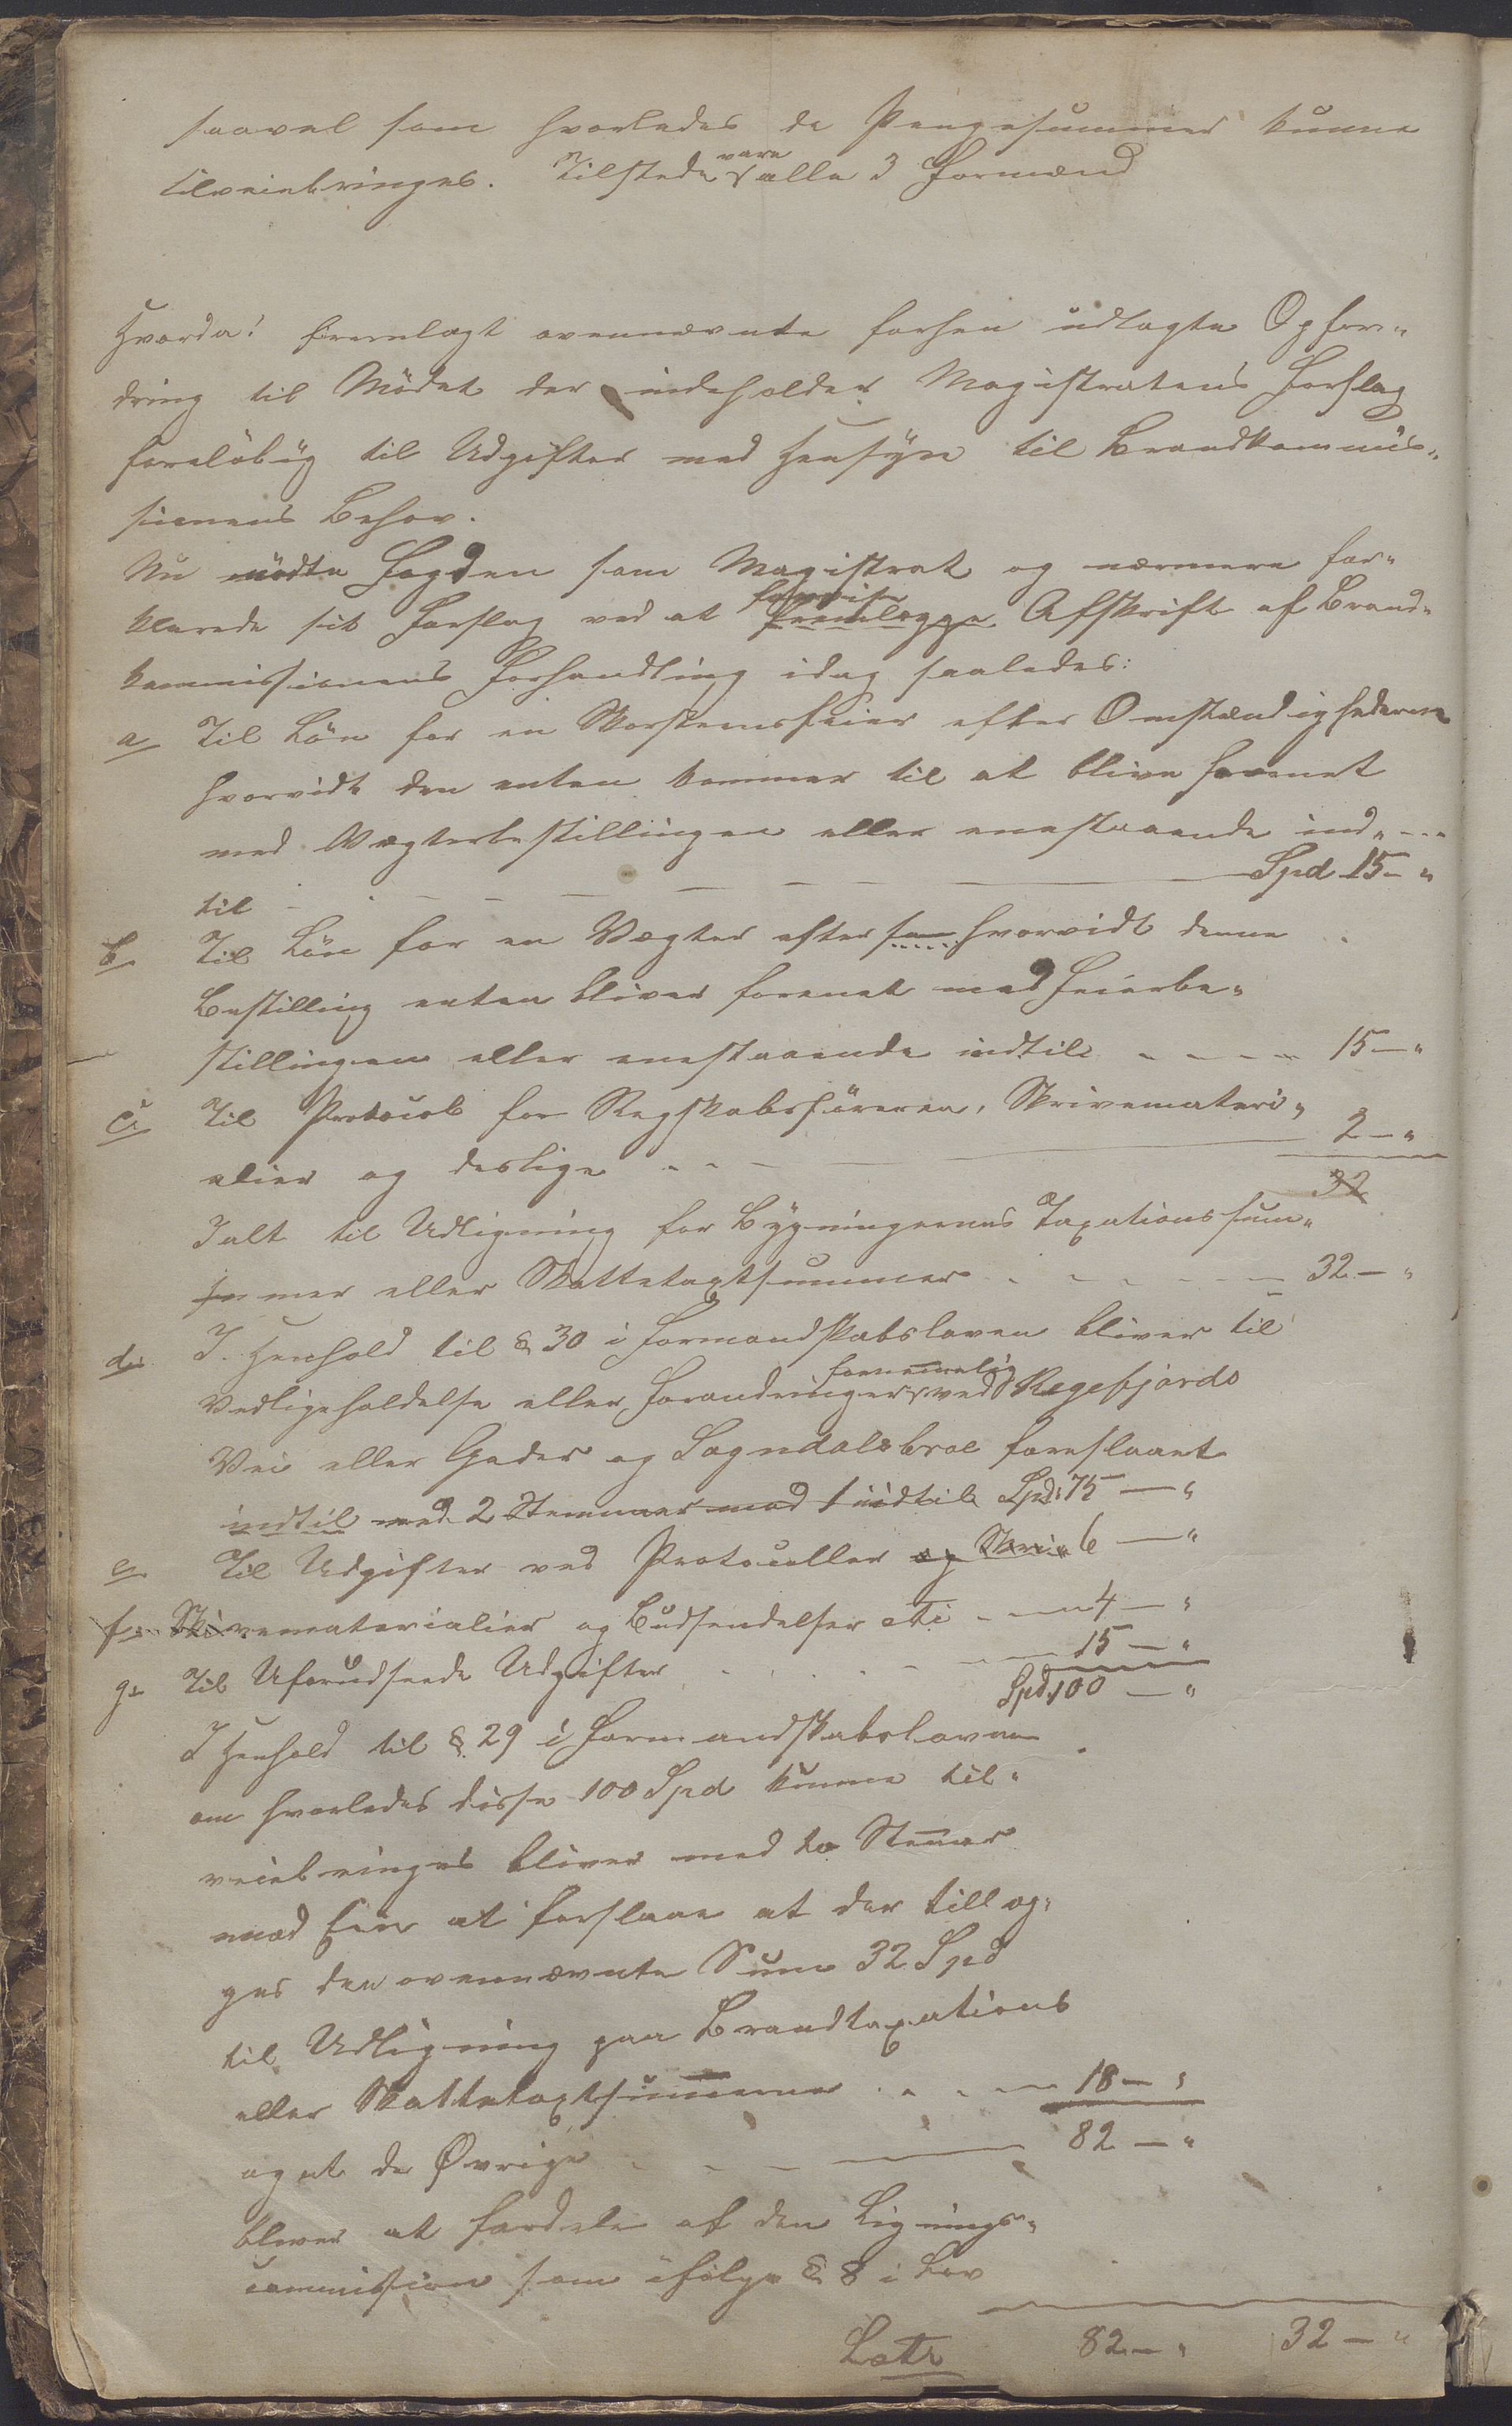 saavel som hvorledes de Pengesummer kunne
tilveiebringes. Tilstede vare alle 3 Formænd
Hvorda! fremlagt ovennævnte forhen udlagte Opfor-
dring til Mödet der indeholder Magistratens Forslag
foreløbig til Udgifter med Hensyn til Brandkommis-
sionens Behov.
Nu mödte Fogden som Magistrat og nærmere for-
klarede sit Forslag ved at fremlægge Afskrift af Brand-
kommissionens Forhandling idag saaledes:
a Til Lön for en Skorsteensfeier efter Omstændighederne
hvorvidt den enten kommer til at blive forenet
med Vægterbestillingen eller enestaaende ind-
til Spd 15 - "
b. Til Lön for en Vægter eftersom hvorvidt denne
Bestilling enten bliver forenet med Feierbe-
stillingen eller enestaaende indtil 15 - "
c. Til Protocol for Regskabsföreren, Skrivemateri-
alier og deslige 2 - "
32
Ialt til Udligning for Bygningernes Taxationssum-
mer eller Skattetaxtsummer 32 - "
d. I Henhold til § 30 i Formandskabsloven bliver til
Vedligeholdelse eller Forandringer fornemmelig ved Regefjords
Vei eller Gader og Sogndalsbroe foreslaaet
indtil med 2 Stemmer mod 1 indtil Spd: 75 - "
e. Til Udgifter ved Protocoller og Skri- 6 - "
f. Skrivematerialier og Budsendelser etc 4 - "
g. Til Uforudseede Udgifter 15 - "
Spd 100 - "
I Henhold til § 29 i Formandskabsloven
om hvorledes disse 100 Spd kunne til-
veiebringes bliver med to Stemmer
mod Een at forslaae at der tillæg-
ges den ovennævnte Sum 32 Spd
til Udligning paa Brandtaxations
eller Skattetaxtsummerne 18 - "
og at de Øvrige 82 - "
bliver at fordele af den Lignings-
commission som ifölge § 8 i Lov
Latr 82 - " 32 - "